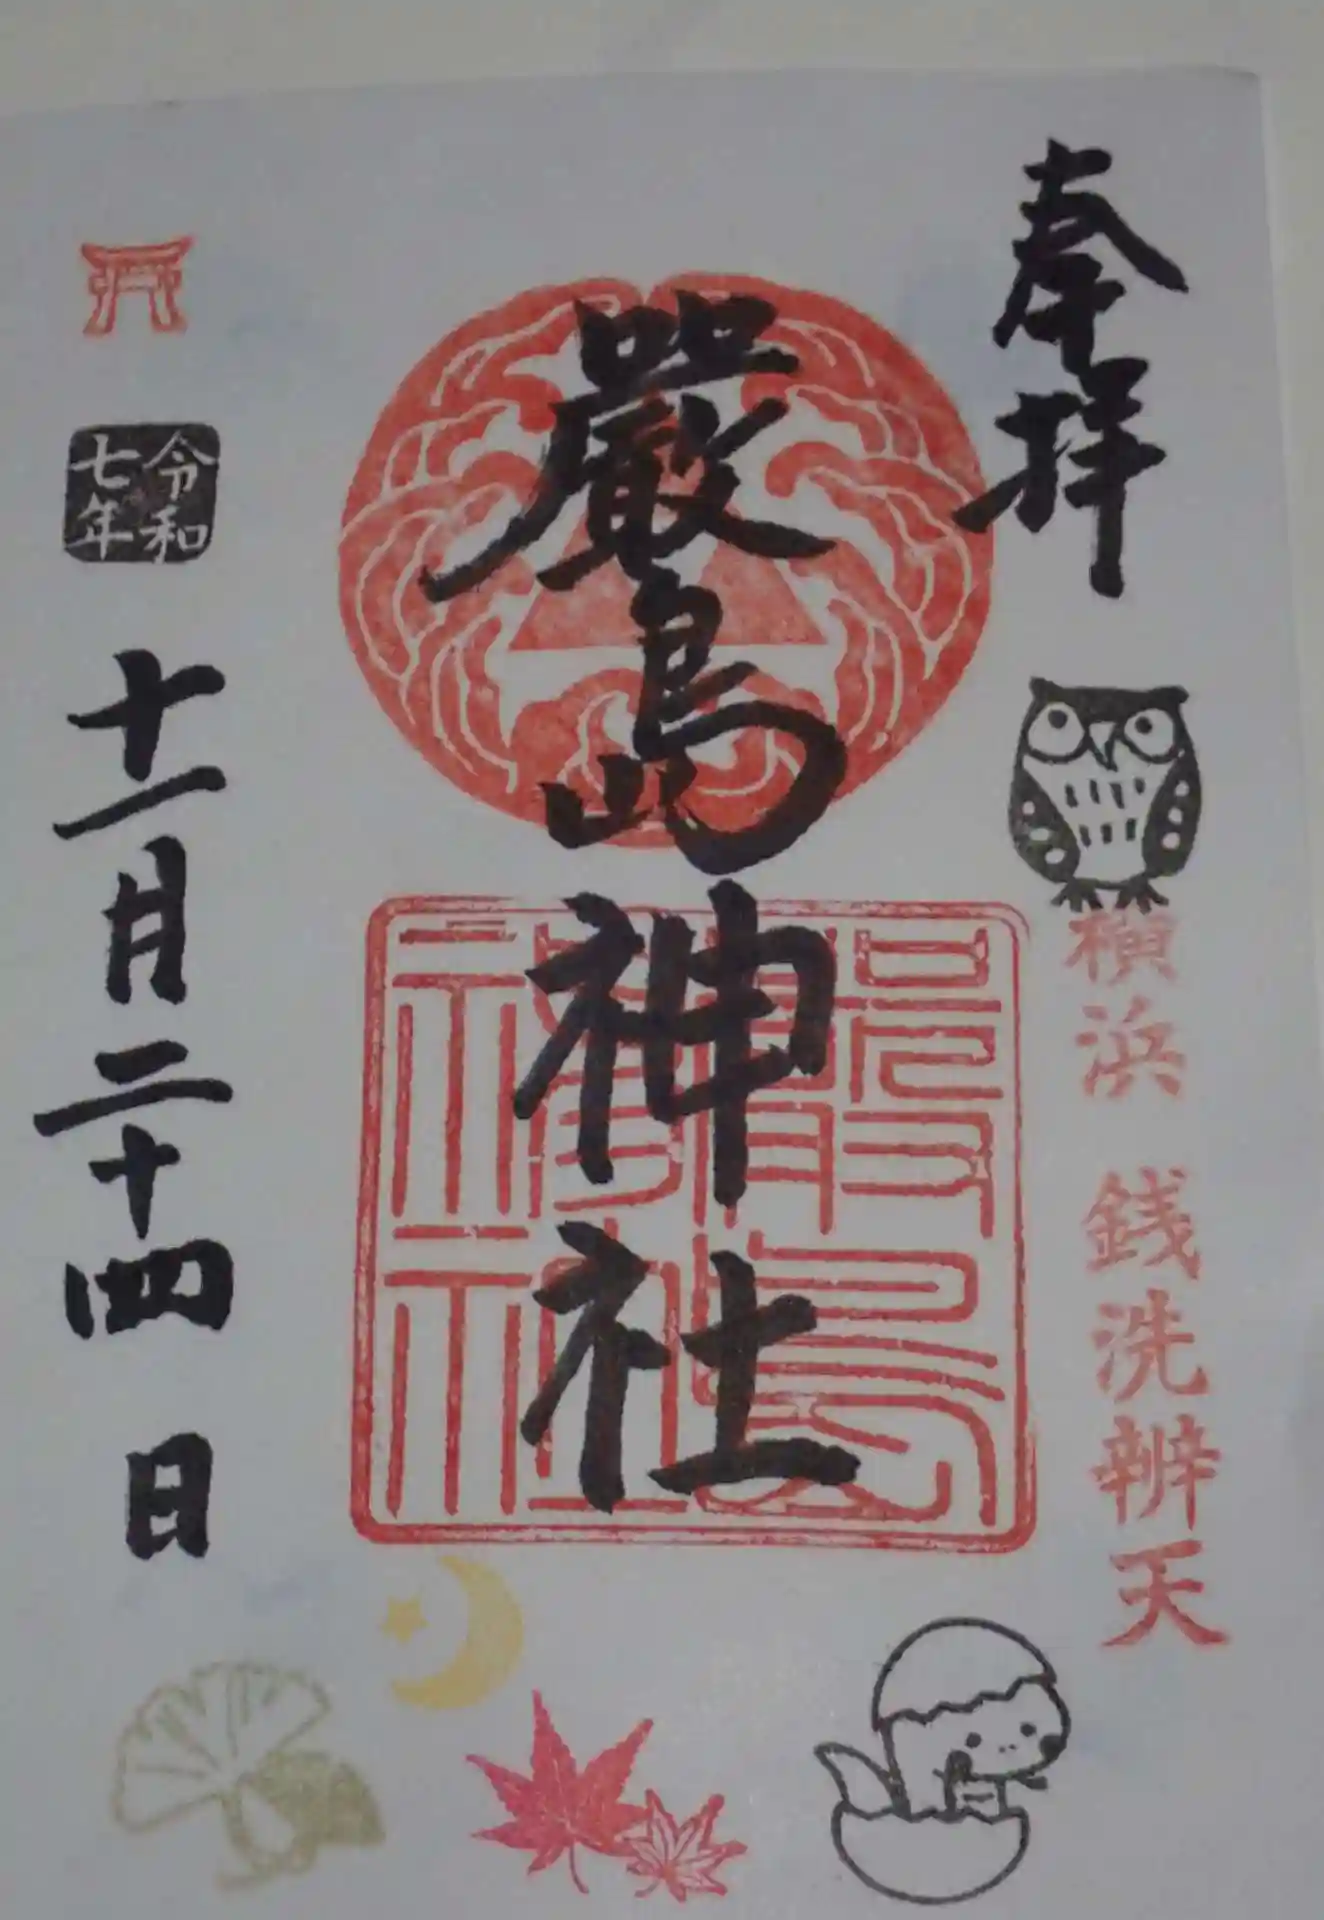 奉拝
横浜 銭洗辨天
嚴島神社
嚴島
神社
令和
七年
十一月二十四日